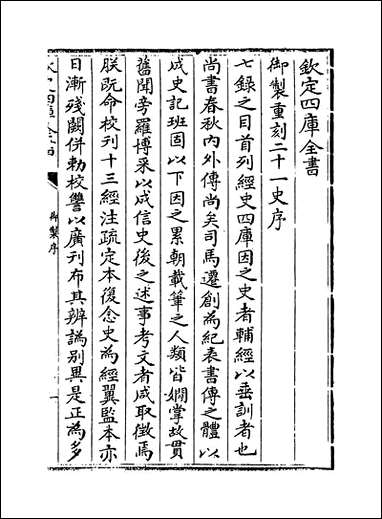 欽定四庫全書
御製重刻二十一史序
七錄之目首列經史四庫因之史者輔經以垂訓者也
尚書春秋內外傳尚矣司馬遷創為紀表書傳之體以
成史記班固以下因之累朝載筆之人類皆嫻掌故貫
舊聞旁羅博采以成信史後之述事考文者咸取徵焉
朕旣命校刋十三經注疏定本復念史為經翼監本亦
日漸殘闕併勅校讐以廣刋布其辨譌別異是正為多
御製序
一